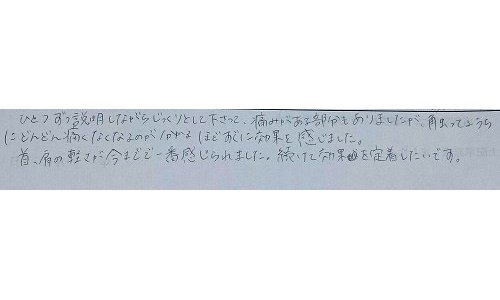 ひとつずつ説明しながらじっくりとして下さって、痛みがある部分もありましたが、触ってるうち
にどんどん痛くなくなるのがわかるほどすぐに効果を感じました。
首、肩の軽さが今までで一番感じられました。続けて効果を定着したいです。